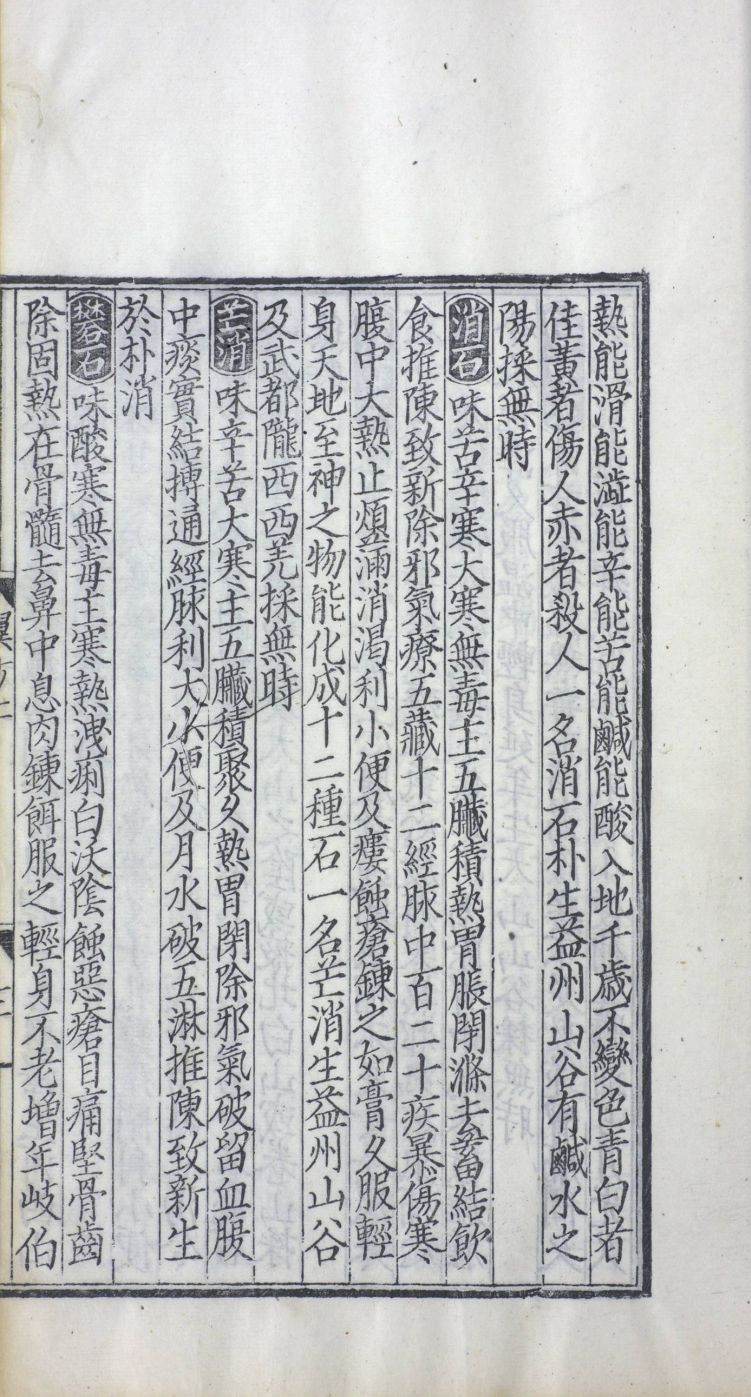 熱能滑能澁能辛能苦能鹹能酸入地千歲不變色青白者
佳黃者傷人赤者殺人一名消石朴生益州山谷有鹹水之
陽採無時
消石味苦辛寒大寒無毒主五臟積熱胃脹閉滌去蓄結飲
食推陳致新除邪氣療五藏十二經脉中百二十疾暴傷寒
腹中大熱止煩滿消渴利小便及瘻蝕瘡鍊之如膏久服輕
身天地至神之物能化成十二種石一名芒消生益州山谷
及武都隴西西羌採無時
芒消味辛苦大寒主五臟積聚久熱胃閉除邪氣破留血腹
中痰實結搏通經脉利大小便及月水破五淋推陳致新生
於朴消
礬石味酸寒無毒主寒熱洩痢白沃陰蝕惡瘡目痛堅骨齒
除固熱在骨髓去鼻中息肉鍊餌服之輕身不老增年岐伯